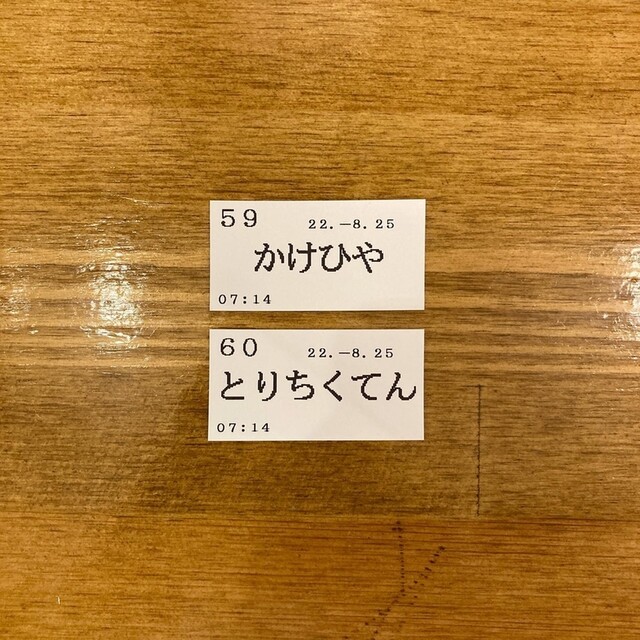 59
22.-8.25
かけひや
07:14
60
22.-8.25
とりちくてん
07:14